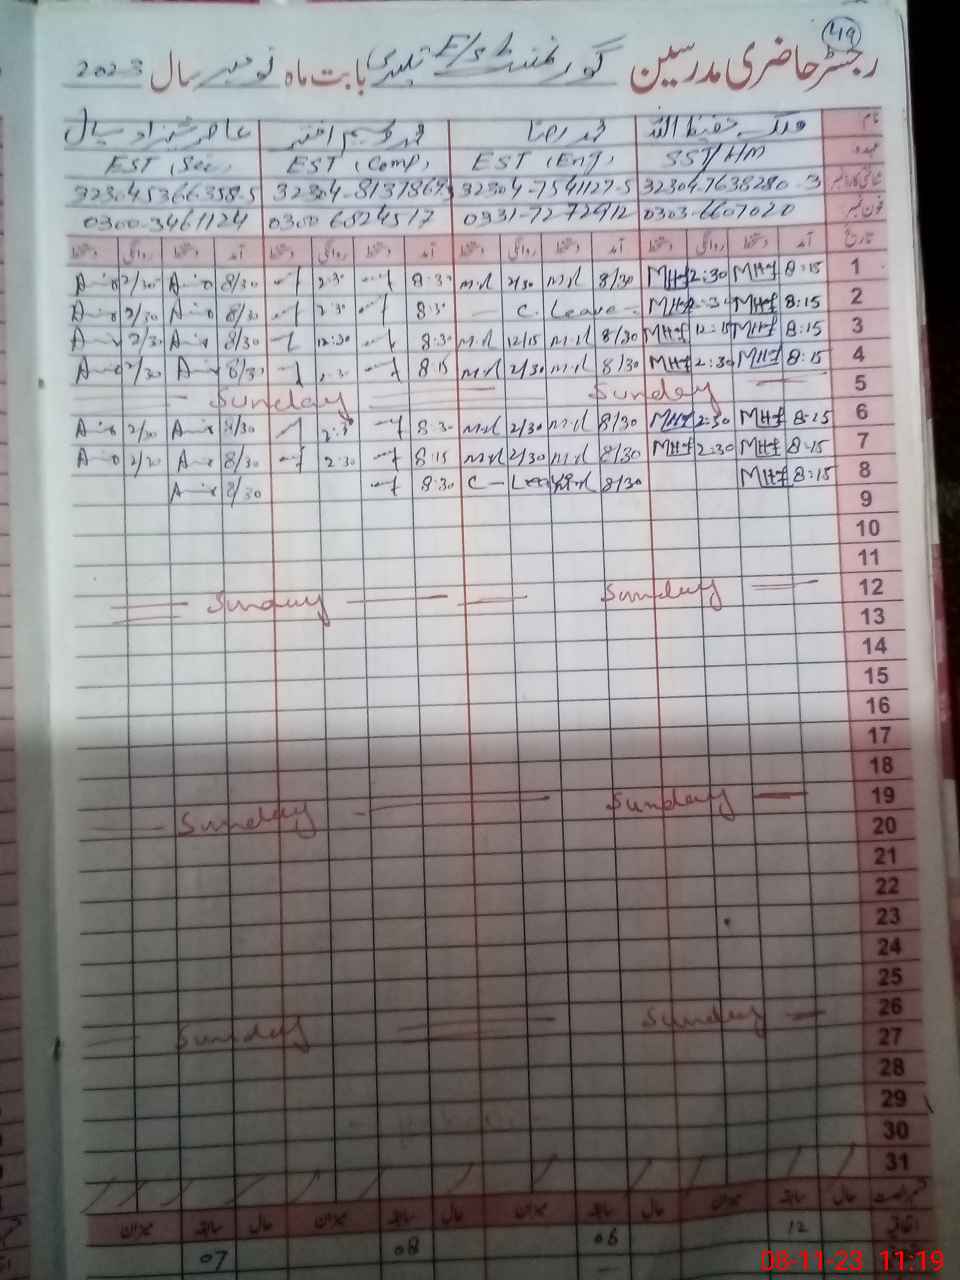 49
رجسٹر حاضری مدرسین گورنمنٹ E/S بابت ماہ نومبر سال 2023
نام ملک حفیظ اللہ محمد رضا محمد وسیم اختر عامر شہزاد سیال
عہدہ SST/HM EST (Eng) EST (Comp) EST (Sci)
شناختی کارڈ نمبر 32304-7638280-3 32304-7541127-5 32304-8137869 32304-5366358-5
فون نمبر 0303-6607020 0331-7272912 0300 6524517 0300-3461124
تاریخ آمد دستخط روانگی دستخط آمد دستخط روانگی دستخط آمد دستخط روانگی دستخط آمد دستخط روانگی دستخط
1 8:15 MHf 2:30 MHf 8/30 m.r 2/30 m.r 8:30 2:30 8/30 2/30
2 8:15 MHf 2:30 MHf C. Leave 8:30 2:30 8/30 2/30
3 8:15 MHf 12:15 MHf 8/30 m.r 12/15 m.r 8:30 12:30 8/30
4 8:15 MHf 2:30 MHf 8/30 m.r 2/30 m.r 8:15 8/30 2/30
5 Sunday Sunday
6 8:15 MHf 2:30 MHf 8/30 m.r 2/30 m.r 8:30 2:30 8/30 2/30
7 8:15 MHf 2:30 MHf 8/30 m.r 2/30 m.r 8:15 2:30 8/30 2/30
8 8:15 MHf 8/30 C-Leave 8:30 8/30
9
10
11
12 Sunday Sunday
13
14
15
16
17
18
19 Sunday Sunday
20
21
22
23
24
25
26 Sunday Sunday
27
28
29
30
31
سابقہ حال میزان سابقہ حال میزان سابقہ حال میزان سابقہ حال میزان
اتفاقیہ 12 06 08 07
08-11-23 11:19